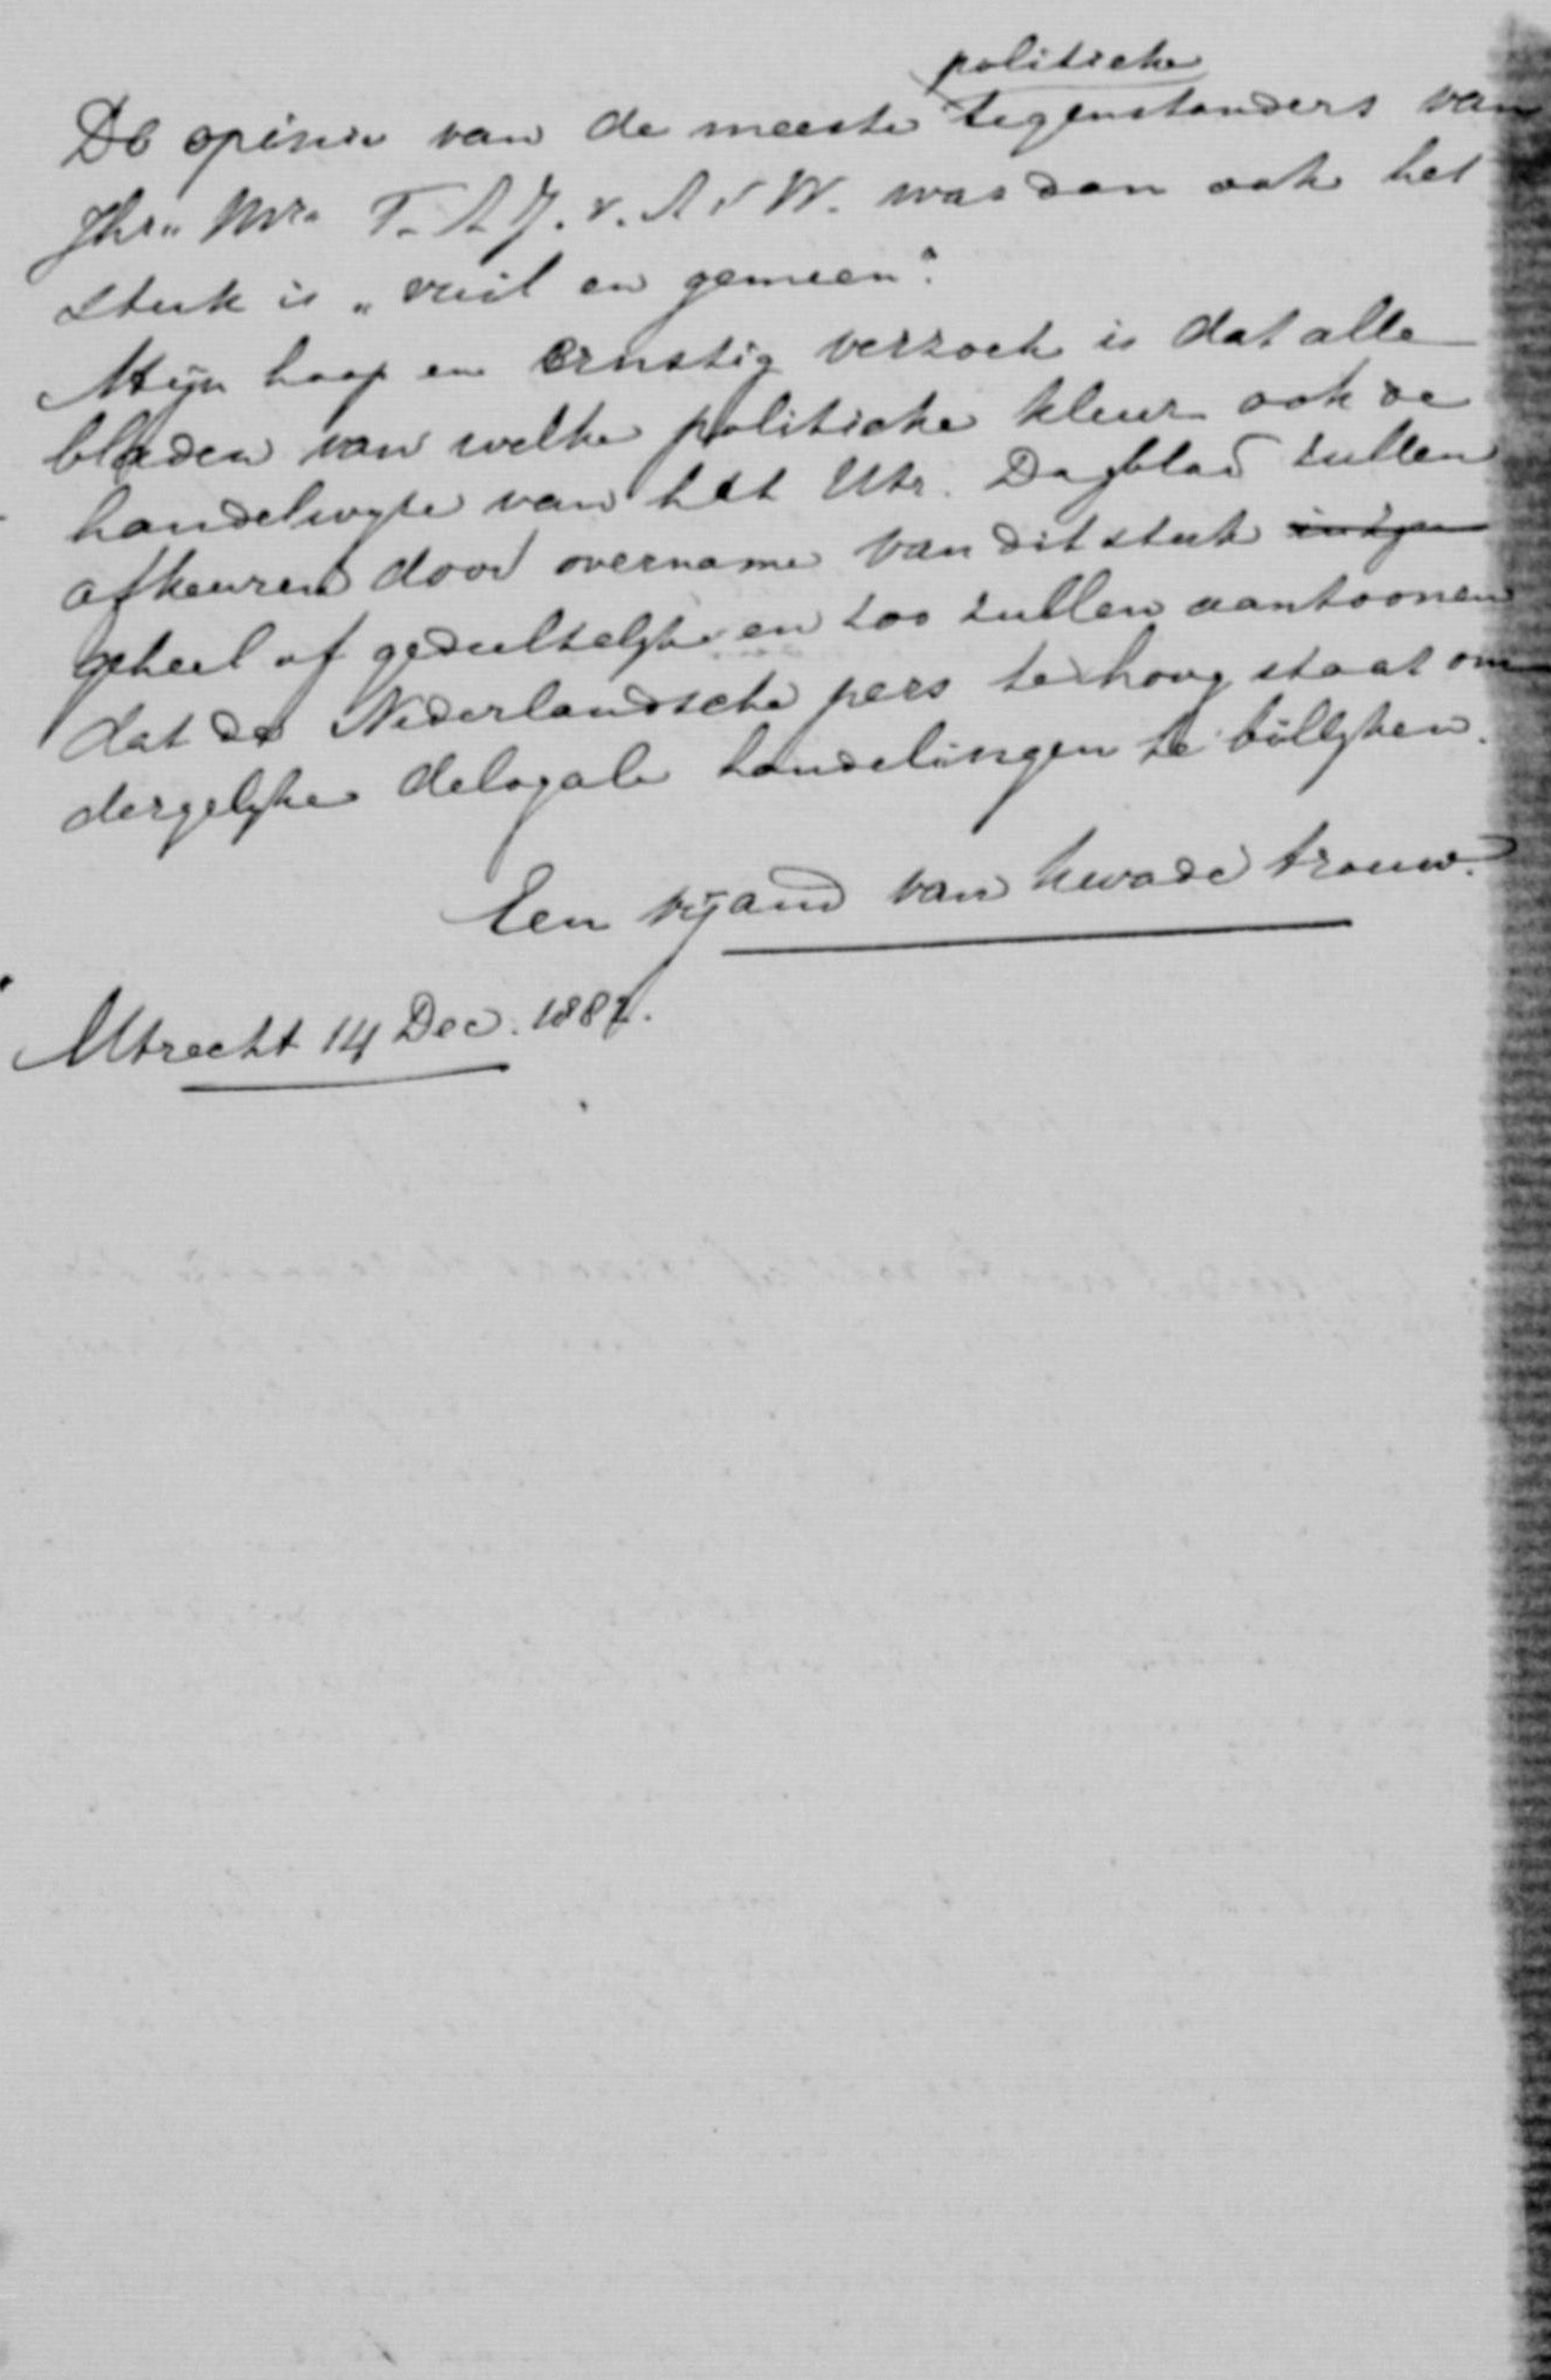 politieke
De opinie van de meeste tegenstanders van
Jhr. Mr. T. A. J. v. A v W. was dan ook het
stuk is „vuil en gemeen".
Mijn hoop en ernstig verzoek is dat alle
bladen van welke politieke kleur ook de
handelwyze van het Utr. Dagblad zullen
afkeuren door overname van dit stuk
geheel of gedeeltelyk en zoo zullen aantoonen
dat de Nederlandsche pers te hoog staat om
dergelyke deloyale handelingen te billyken.
Een vijand van kwade trouw.
Utrecht 14 Dec. 1887.